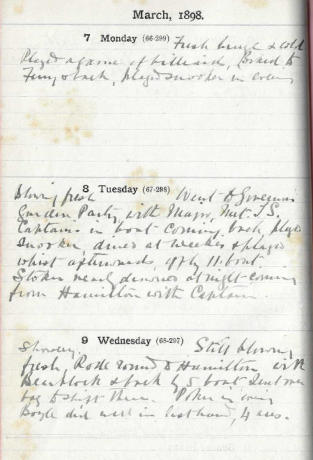 March, 1898.
7 Monday (66-299) Fresh breeze & cold
Played a game of billiards, Boated to
Ferry & back, played snooker in evening
blowing fresh 8 Tuesday (67-298) Went to Governor's
Garden Party with Major,
Captain in boat coming back, played
snooker, dined at & played
whist afterwards, 11 boat.
Stoker nearly drowned at night coming
from Hamilton with Captain.
Showery 9 Wednesday (68-297) Still blowing
fresh, Rode round to Hamilton with
& back by 5 boat sent over
bag to shift there. Poker in evening
Boyle did well in last hand, 4 aces.